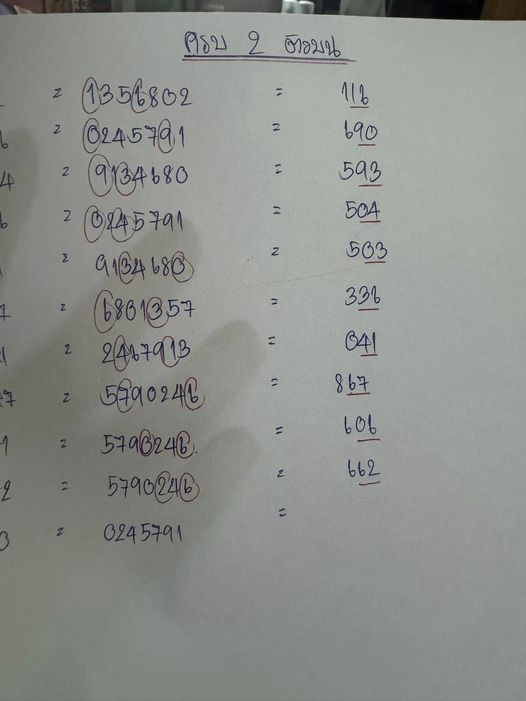 ครบ 2 ตัวบน
= 1356802 = 116
6 = 0245791 = 690
4 = 9134680 = 593
6 = 0245791 = 504
= 9134680 = 503
7 = 6801357 = 336
1 = 2467913 = 041
7 = 5790246 = 867
1 = 5790246 = 606
2 = 5790246 = 662
0 = 0245791 =